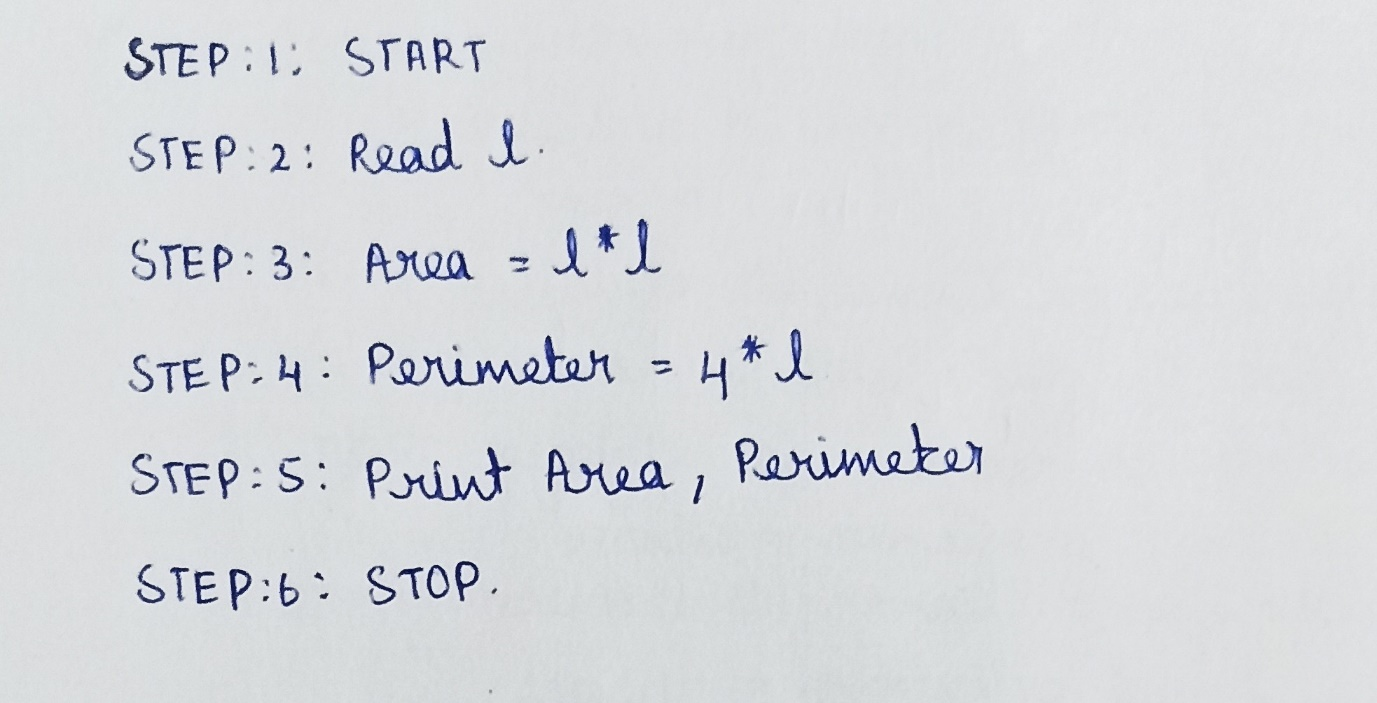 STEP:1: START
STEP:2: Read l.
STEP:3: Area = l*l
STEP:4: Perimeter = 4*l
STEP:5: Print Area, Perimeter
STEP:6: STOP.